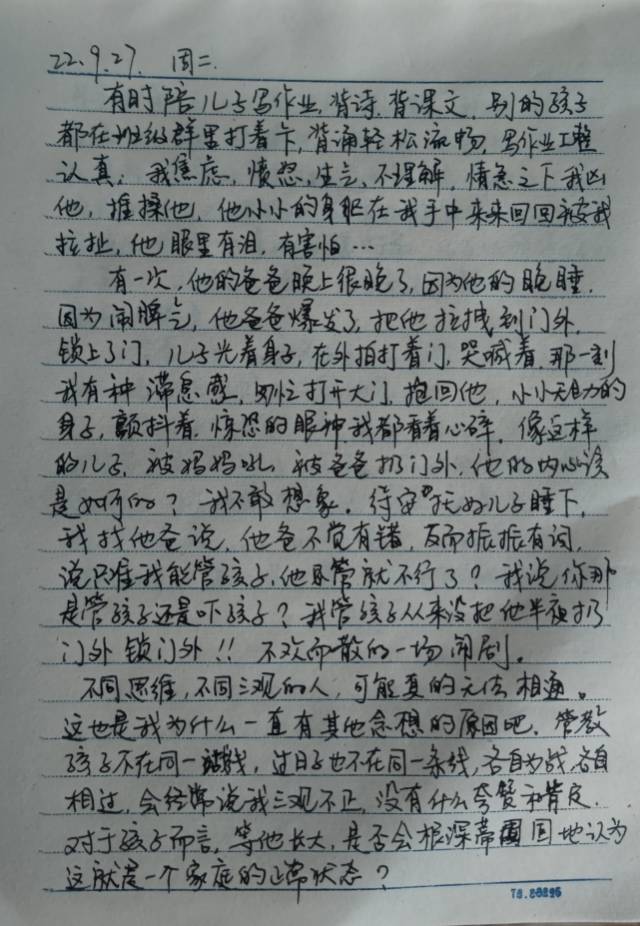 22.9.27. 周二.
有时陪儿子写作业,背诗,背课文,别的孩子
都在班级群里打着卡,背诵轻松流畅,写作业工整
认真;我焦虑,愤怒,生气,不理解,情急之下我凶
他,推搡他,他小小的身躯在我手中来来回回被我
拉扯,他眼里有泪,有害怕…
有一次,他的爸爸晚上很晚了,因为他的晚睡.
因为闹脾气,他爸爸爆发了,把他拉拽到门外,
锁上了门,儿子光着身子,在外拍打着门,哭喊着,那一刻
我有种滞息感,匆忙打开大门,抱回他,小小无力的
身子,颤抖着,惊恐的眼神我都看着心碎,像这样
的儿子,被妈妈吼,被爸爸扔门外,他的内心该
是如何的?我不敢想象.待安抚好儿子睡下,
我找他爸说,他爸不觉有错,反而振振有词,
说只准我能管孩子,他管就不行了?我说你那
是管孩子还是吓孩子?我管孩子从来没把他半夜扔
门外锁门外!!不欢而散的一场闹剧。
不同思维,不同三观的人,可能真的无法相通。
这也是我为什么一直有其他念想的原因吧.管教
孩子不在同一战线,过日子也不在同一条线,各自为战,各自
相过,会经常说我三观不正,没有什么夸赞和肯定.
对于孩子而言,等他长大,是否会根深蒂固地认为
这就是一个家庭的正常状态?